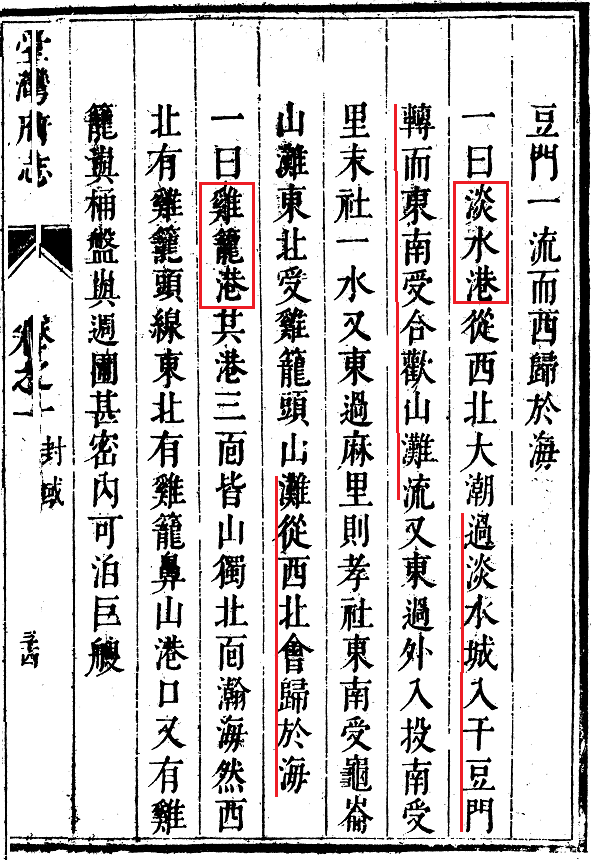 豆門一流而西歸於海
一曰淡水港從西北大潮過淡水城入干豆門
轉而東南受合歡山灘流又東過外入投南受
里末社一水又東過麻里則孝社東南受龜崙
山灘東北受雞籠頭山灘從西北會歸於海
一曰雞籠港其港三面皆山獨北面瀚海然西
北有雞籠頭線東北有雞籠鼻山港口又有雞
籠與桶盤與週圍甚密內可泊巨艘
臺灣府志
卷之一
封域